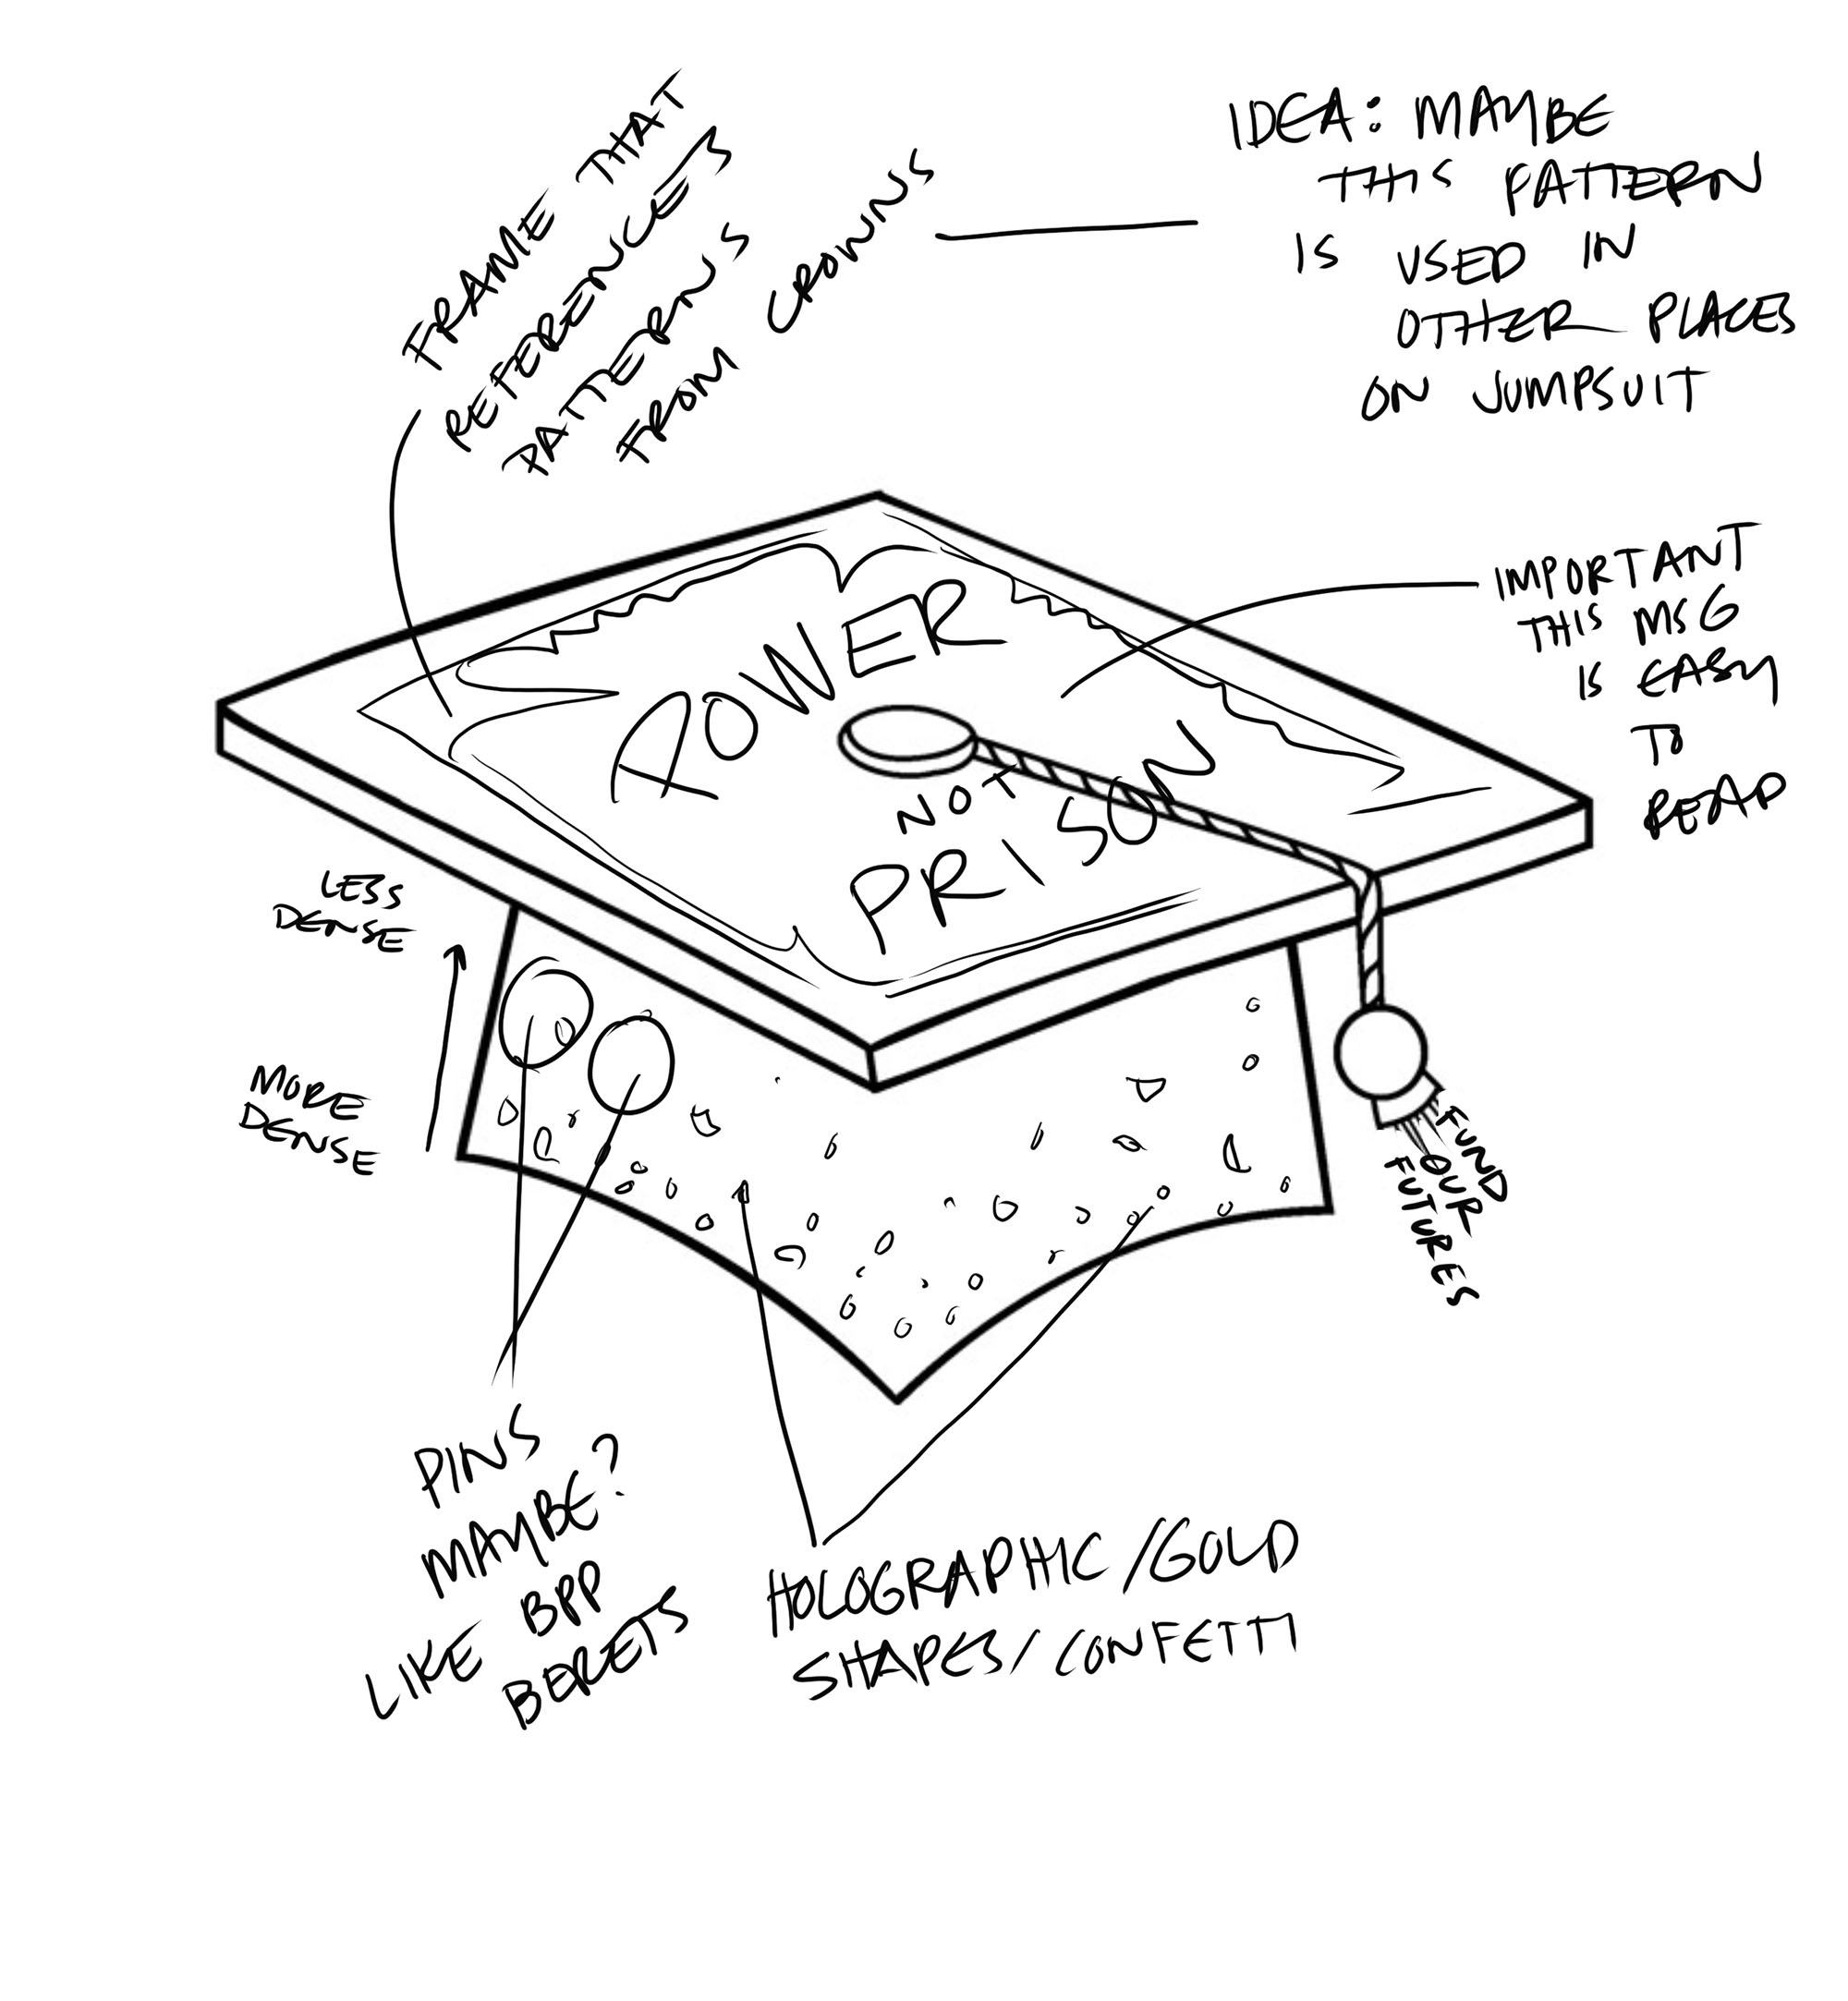 FRAME THAT
REFERENCES
PATTERNS
FROM CROWNS
IDEA: MAYBE
THIS PATTERN
IS USED IN
OTHER PLACES
ON JUMPSUIT
IMPORTANT
THIS MSG
IS EASY
TO
READ
POWER
NOT
PRISON
LESS
DENSE
MORE
DENSE
FUND
OUR
FUTURES
PINS
MAYBE?
LIKE BPP
BERETS
HOLOGRAPHIC/GOLD
SHAPES/CONFETTI